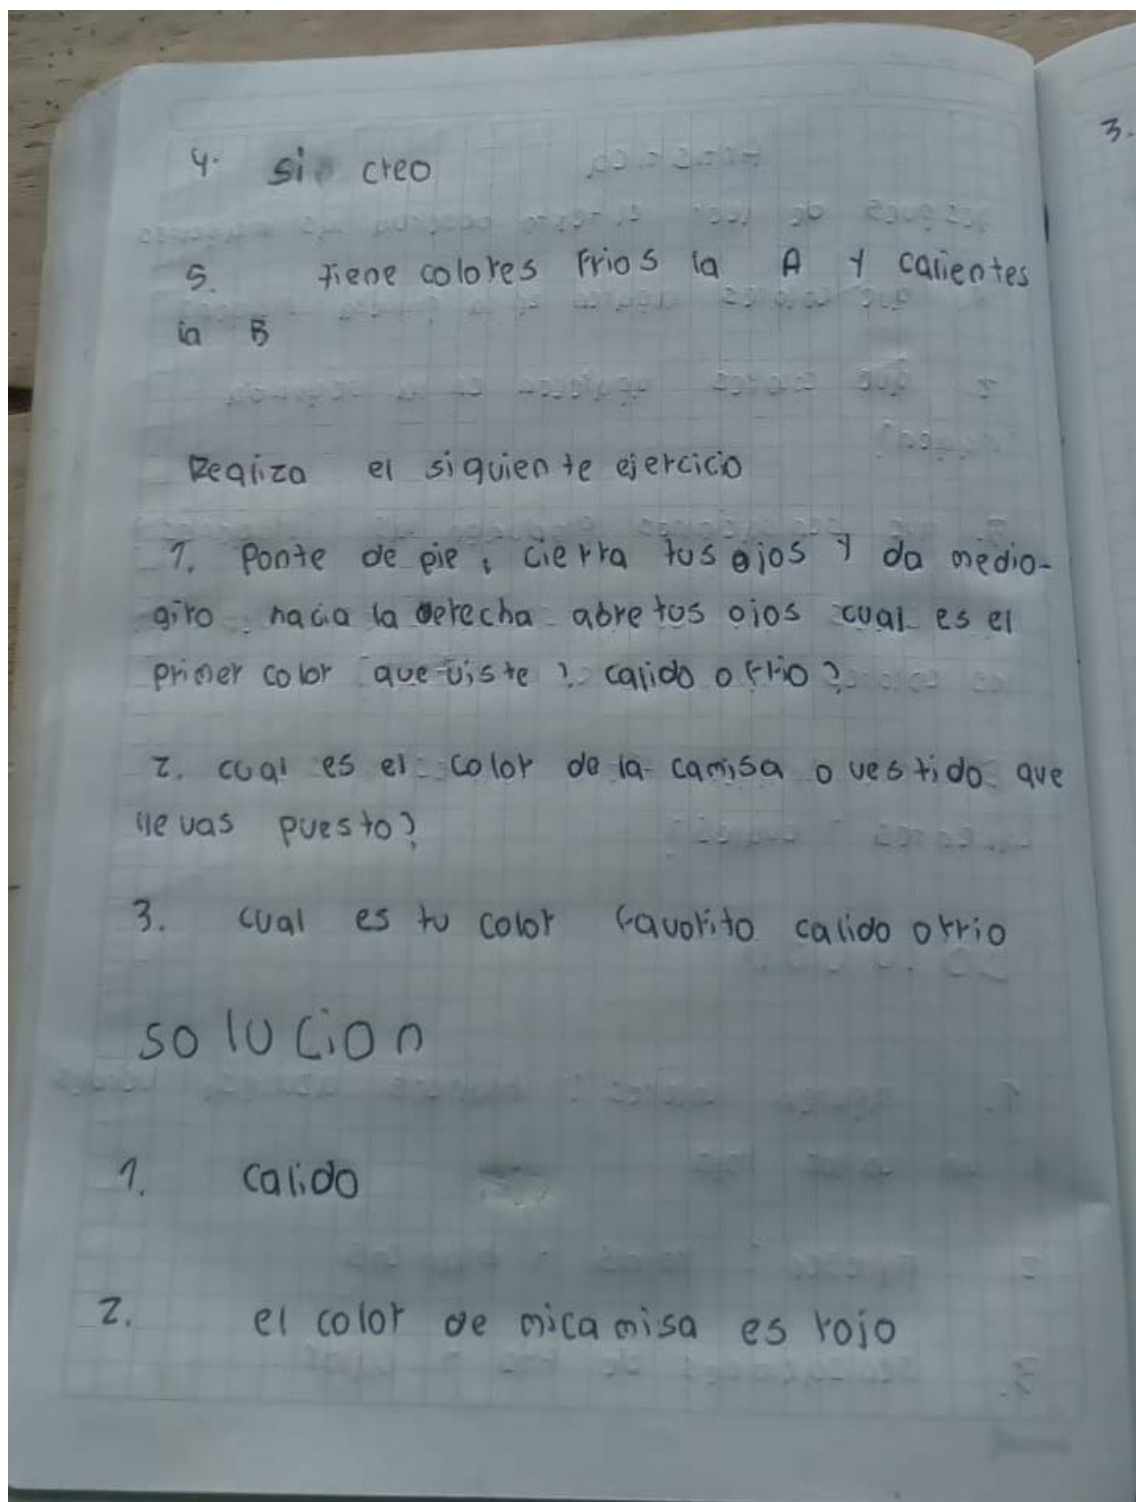 4. si creo
5. tiene colores Frios la A y calientes
la B
Realiza el siguiente ejercicio
1. Ponte de pie, cierra tus ojos y da medio-
giro hacia la derecha abre tus ojos cual es el
primer color que viste? calido o frio?
2. cual es el color de la camisa o vestido que
llevas puesto?
3. cual es tu color favorito calido o frio
solucion
1. calido
2. el color de mi camisa es rojo
3.